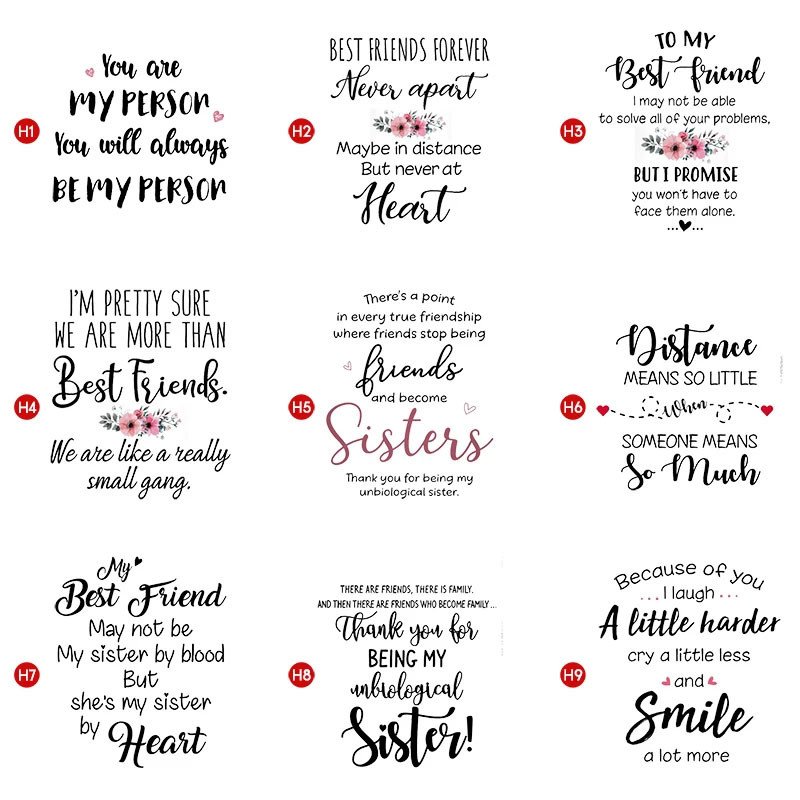 H1
You are
MY PERSON
You will always
BE MY PERSON
H2
BEST FRIENDS FOREVER
Never apart
Maybe in distance
But never at
Heart
H3
TO MY
Best friend
I may not be able
to solve all of your problems,
BUT I PROMISE
you won't have to
face them alone.
...♥...
H4
I'M PRETTY SURE
WE ARE MORE THAN
Best Friends.
We are like a really
small gang.
H5
There's a point
in every true friendship
where friends stop being
friends
and become
Sisters
Thank you for being my
unbiological sister.
H6
Distance
MEANS SO LITTLE
When
SOMEONE MEANS
So Much
H7
My
Best Friend
May not be
My sister by blood
But
she's my sister
by Heart
H8
THERE ARE FRIENDS, THERE IS FAMILY.
AND THEN THERE ARE FRIENDS WHO BECOME FAMILY...
Thank you for
BEING MY
unbiological
Sister!
H9
Because of you
...I laugh...
A little harder
cry a little less
and
Smile
a lot more